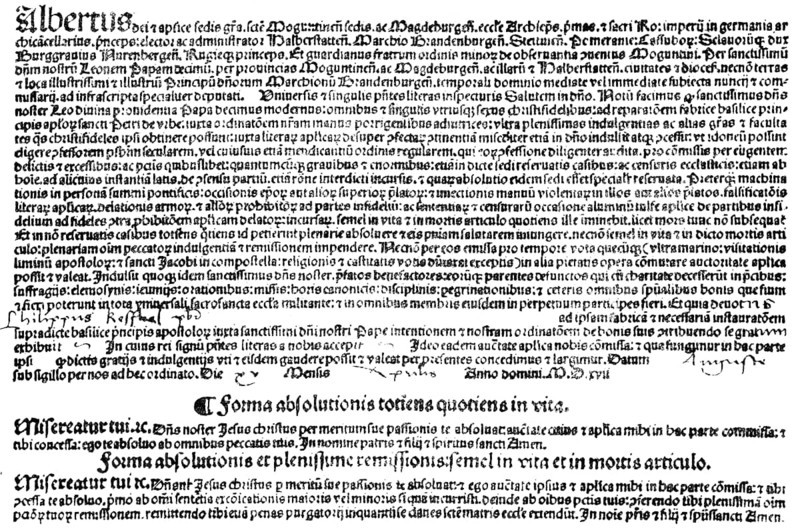 Albertus dei et aplice sedis gr̃a. scte Moguntineñ sedis. ac Magdeburgeñ. eccl̃e Archiep̃s. p̃mas. et sacri Ro: imperij in germania ar
chicãcellarius. p̃nceps: elector ac administrator Halberstatteñ. Marchio Brandenburgeñ. Stetineñ. Pomeranie: Cassuborũ: Sclauorũq: dux
Burggrauius Nurenbergeñ. Rugieq: princeps. Et guardianus fratrum ordinis minorũ de obseruantia ꝯuentus Moguntini. Per sanctissimũ
dñm nostrũ Leonem Papam decimũ. per prouincias Moguntineñ. ac Magdeburgeñ. ac illarũ et Halberstatteñ. ciuitates et dioceẽ. necnõ terras
et loca illustrissimi et illustriũ Principũ dñorum Marchionũ Brandenburgeñ. temporali dominio mediate vel immediate subiecta nuncij et com-
missarij. ad infrascripta specialiter deputati. Vniuersis et singulis p̃ntes literas inspecturis Salutem in dño. Notũ facimus ꝙ sanctissimus dñs
noster Leo diuina prouidentia Papa decimus modernus: omnibus et singulis vtriusq: sexus christifidelibus: ad reparationem fabrice basilice prin-
cipis aplorũ sancti Petri de vrbe: iuxta ordinatõem nr̃am manus porrigentibus adiutrices: vltra plenissimas indulgentias ac alias gr̃as et faculta
tes q̃s christifideles ipsi obtinere possunt: iuxta literarũ aplicarũ desuper ꝯfectarũ ꝯtinentiã misericorditer etiã in dño indulsit atq: ꝯcessit: vt idoneũ possint
eligere ꝯfessorem presbiterũ secularem. vel cuiusuis etiã mendicantiũ ordinis regularem. qui eorũ ꝯfessione diligenter audita. pro cõmissis per eligentem
delictis et excessibus: ac peccatis quibuslibet: quantumcũq: grauibus et enormibus: etiã in dicte sedi reseruatis casibus: ac censuris ecclesiasticis: etiam ab
hoĩe. ad alicuius instantiã latis. de ꝯsensu partiũ. etiã rõne interdicti incursis. et quarũ absolutio eidem sedi esset specialiter reseruata. Preterq: machina
tionis in personã summi pontificis: occisionis ep̃orũ aut aliorũ superiorũ p̃latorũ: et iniectionis manuũ violentarũ in illos aut alios p̃latos. falsificatõis
literarũ aplicarũ. delationis armorũ. et aliorũ prohibitorũ ad partes infideliũ: ac sententiarũ et censurarũ occasione aluminũ tulfe aplice de partibus infi-
delium ad fideles ꝯtra ꝓhibitõem aplicam delatorũ: incursarũ. semel in vita et in mortis articulo quotiens ille imminebit. licet mors tunc nõ subsequatur
Et in nõ reseruatis casibus totiens quotiens id petierint plenarie absoluere et eis pñiam salutarem iniungere. necnõ semel in vita et in dicto mortis arti-
culo: plenariam oĩm peccatorũ indulgentiã et remissionem impendere. Necnõ per eos emissa pro tempore vota quecũq: (vltramarino: visitationis
liminũ apostolorũ: et sancti Jacobi in compostella: religionis et castitatis votis dũtaxat exceptis) in alia pietatis opera cõmutare auctoritate aplica
possit et valeat. Indulsit quoq: idem sanctissimus dñs noster. p̃fatos benefactores: eorũq: parentes defunctos qui cũ charitate decesserũt in p̃cibus:
suffragijs: elemosynis: ieiunijs: orationibus: missis: horis canonicis: disciplinis: peregrinationibus: et ceteris omnibus spũalibus bonis que fiunt
et fieri poterunt in tota vniuersali sacrosancta eccl̃ia militante: et in omnibus membris eiusdem in perpetuum participes fieri. Et quia deuotus
Philippus Kessel pb̃r ad ipsam fabricã et necessariã instauratõem
supradicte basilice p̃ncipis apostolorũ iuxta sanctissimi dñi nostri Pape intentionem et nostram ordinatõem de bonis suis ꝯtribuendo se gratum
exhibuit In cuius rei signũ p̃ntes literas a nobis accepit Ideo eadem auctoritate aplica nobis cõmissa: et qua fungimur in hac parte
ipsi ꝙ dictis gratijs et indulgentijs vti et eisdem gaudere possit et valeat per presentes concedimus et largimur. Datum Auguste
sub sigillo per nos ad hec ordinato. Die xv Mensis Aprilis Anno domini. M.D.xvij
¶ Forma absolutionis totiens quotiens in vita.
Misereatur tui ⁊c. Dñs noster Jesus christus per meritum sue passionis te absoluat: auctoritate cuius et aplica mihi in hac parte commissa: et
tibi concessa: ego te absoluo ab omnibus peccatis tuis. In nomine patris et filij et spiritus sancti Amen.
Forma absolutionis et plenissime remissionis: semel in vita et in mortis articulo.
Misereatur tui ⁊c. Dñs noster Jesus christus per meritũ sue passionis te absoluat: et ego auctoritate ipsius et aplica mihi in hac parte cõmissa: et tibi
ꝯcessa te absoluo. p̃mo ab omni sententia excõicationis maioris vel minoris si quã incurristi. deinde ab oĩbus peccatis tuis: ꝯferendo tibi plenissimã oĩm
peccatorũ tuorũ remissionem. remittendo tibi etiã penas purgatorij inquantũ se claues sanctematris eccl̃ie extendũt. In noĩe patris et filij et spũssancti Amen.